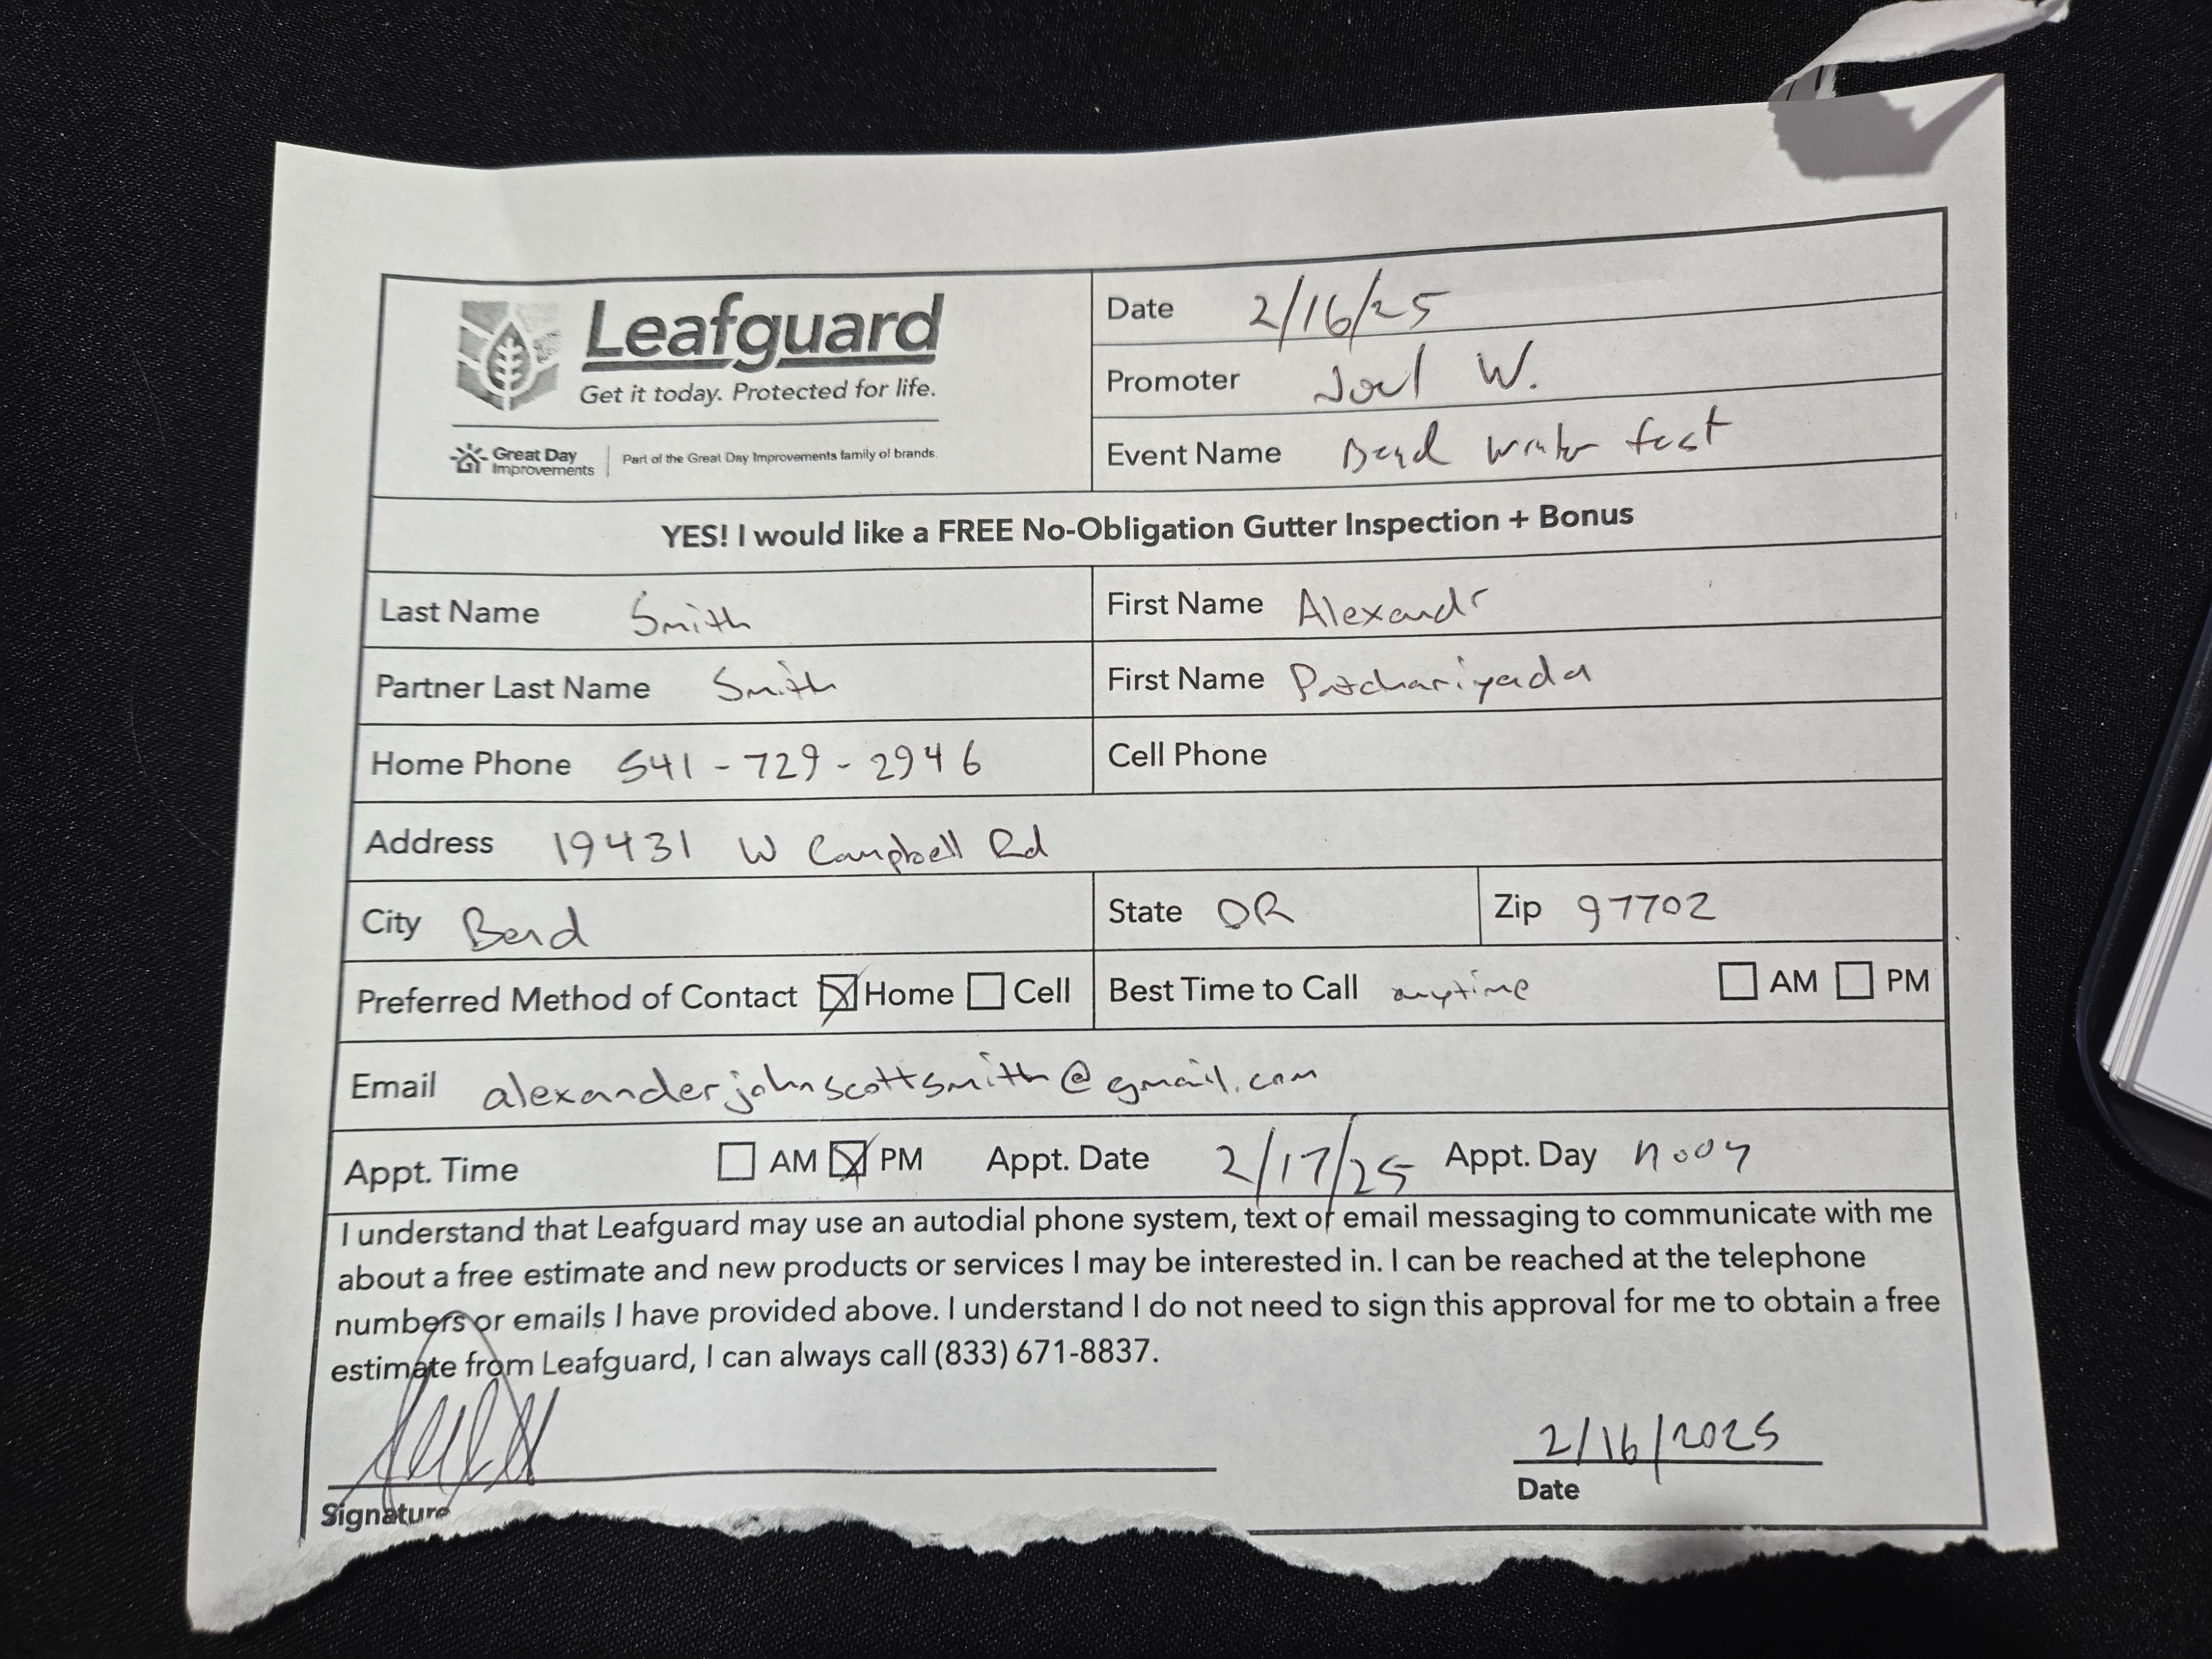 Leafguard
Get it today. Protected for life.
Great Day Improvements | Part of the Great Day Improvements family of brands.
Date 2/16/25
Promoter Joel W.
Event Name Bend winter fest
YES! I would like a FREE No-Obligation Gutter Inspection + Bonus
Last Name Smith First Name Alexandr
Partner Last Name Smith First Name
Home Phone 541-729-2946 Cell Phone
Address 19431 W Campbell Rd
City Bend State OR Zip 97702
Preferred Method of Contact Home Cell Best Time to Call anytime AM PM
Email alexanderjohnscottsmith@gmail.com
Appt. Time AM PM Appt. Date 2/17/25 Appt. Day
I understand that Leafguard may use an autodial phone system, text or email messaging to communicate with me
about a free estimate and new products or services I may be interested in. I can be reached at the telephone
numbers or emails I have provided above. I understand I do not need to sign this approval for me to obtain a free
estimate from Leafguard, I can always call (833) 671-8837.
2/16/2025
Signature Date